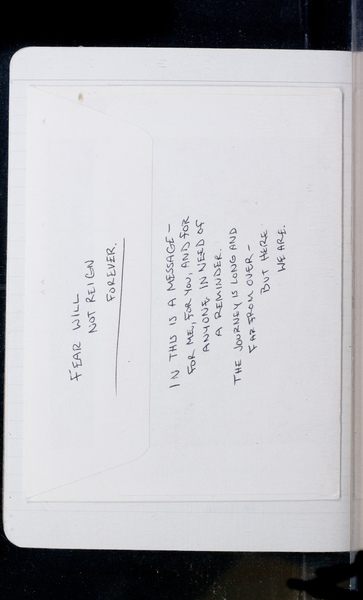 FEAR WILL
NOT REIGN
FOREVER.
IN THIS IS A MESSAGE—
FOR ME, FOR YOU, AND FOR
ANYONE IN NEED OF
A REMINDER.
THE JOURNEY IS LONG AND
FAR FROM OVER—
BUT HERE
WE ARE.